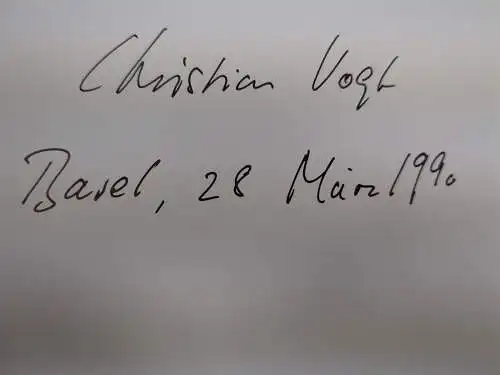 Christian Vogt
Basel, 28 März 1990